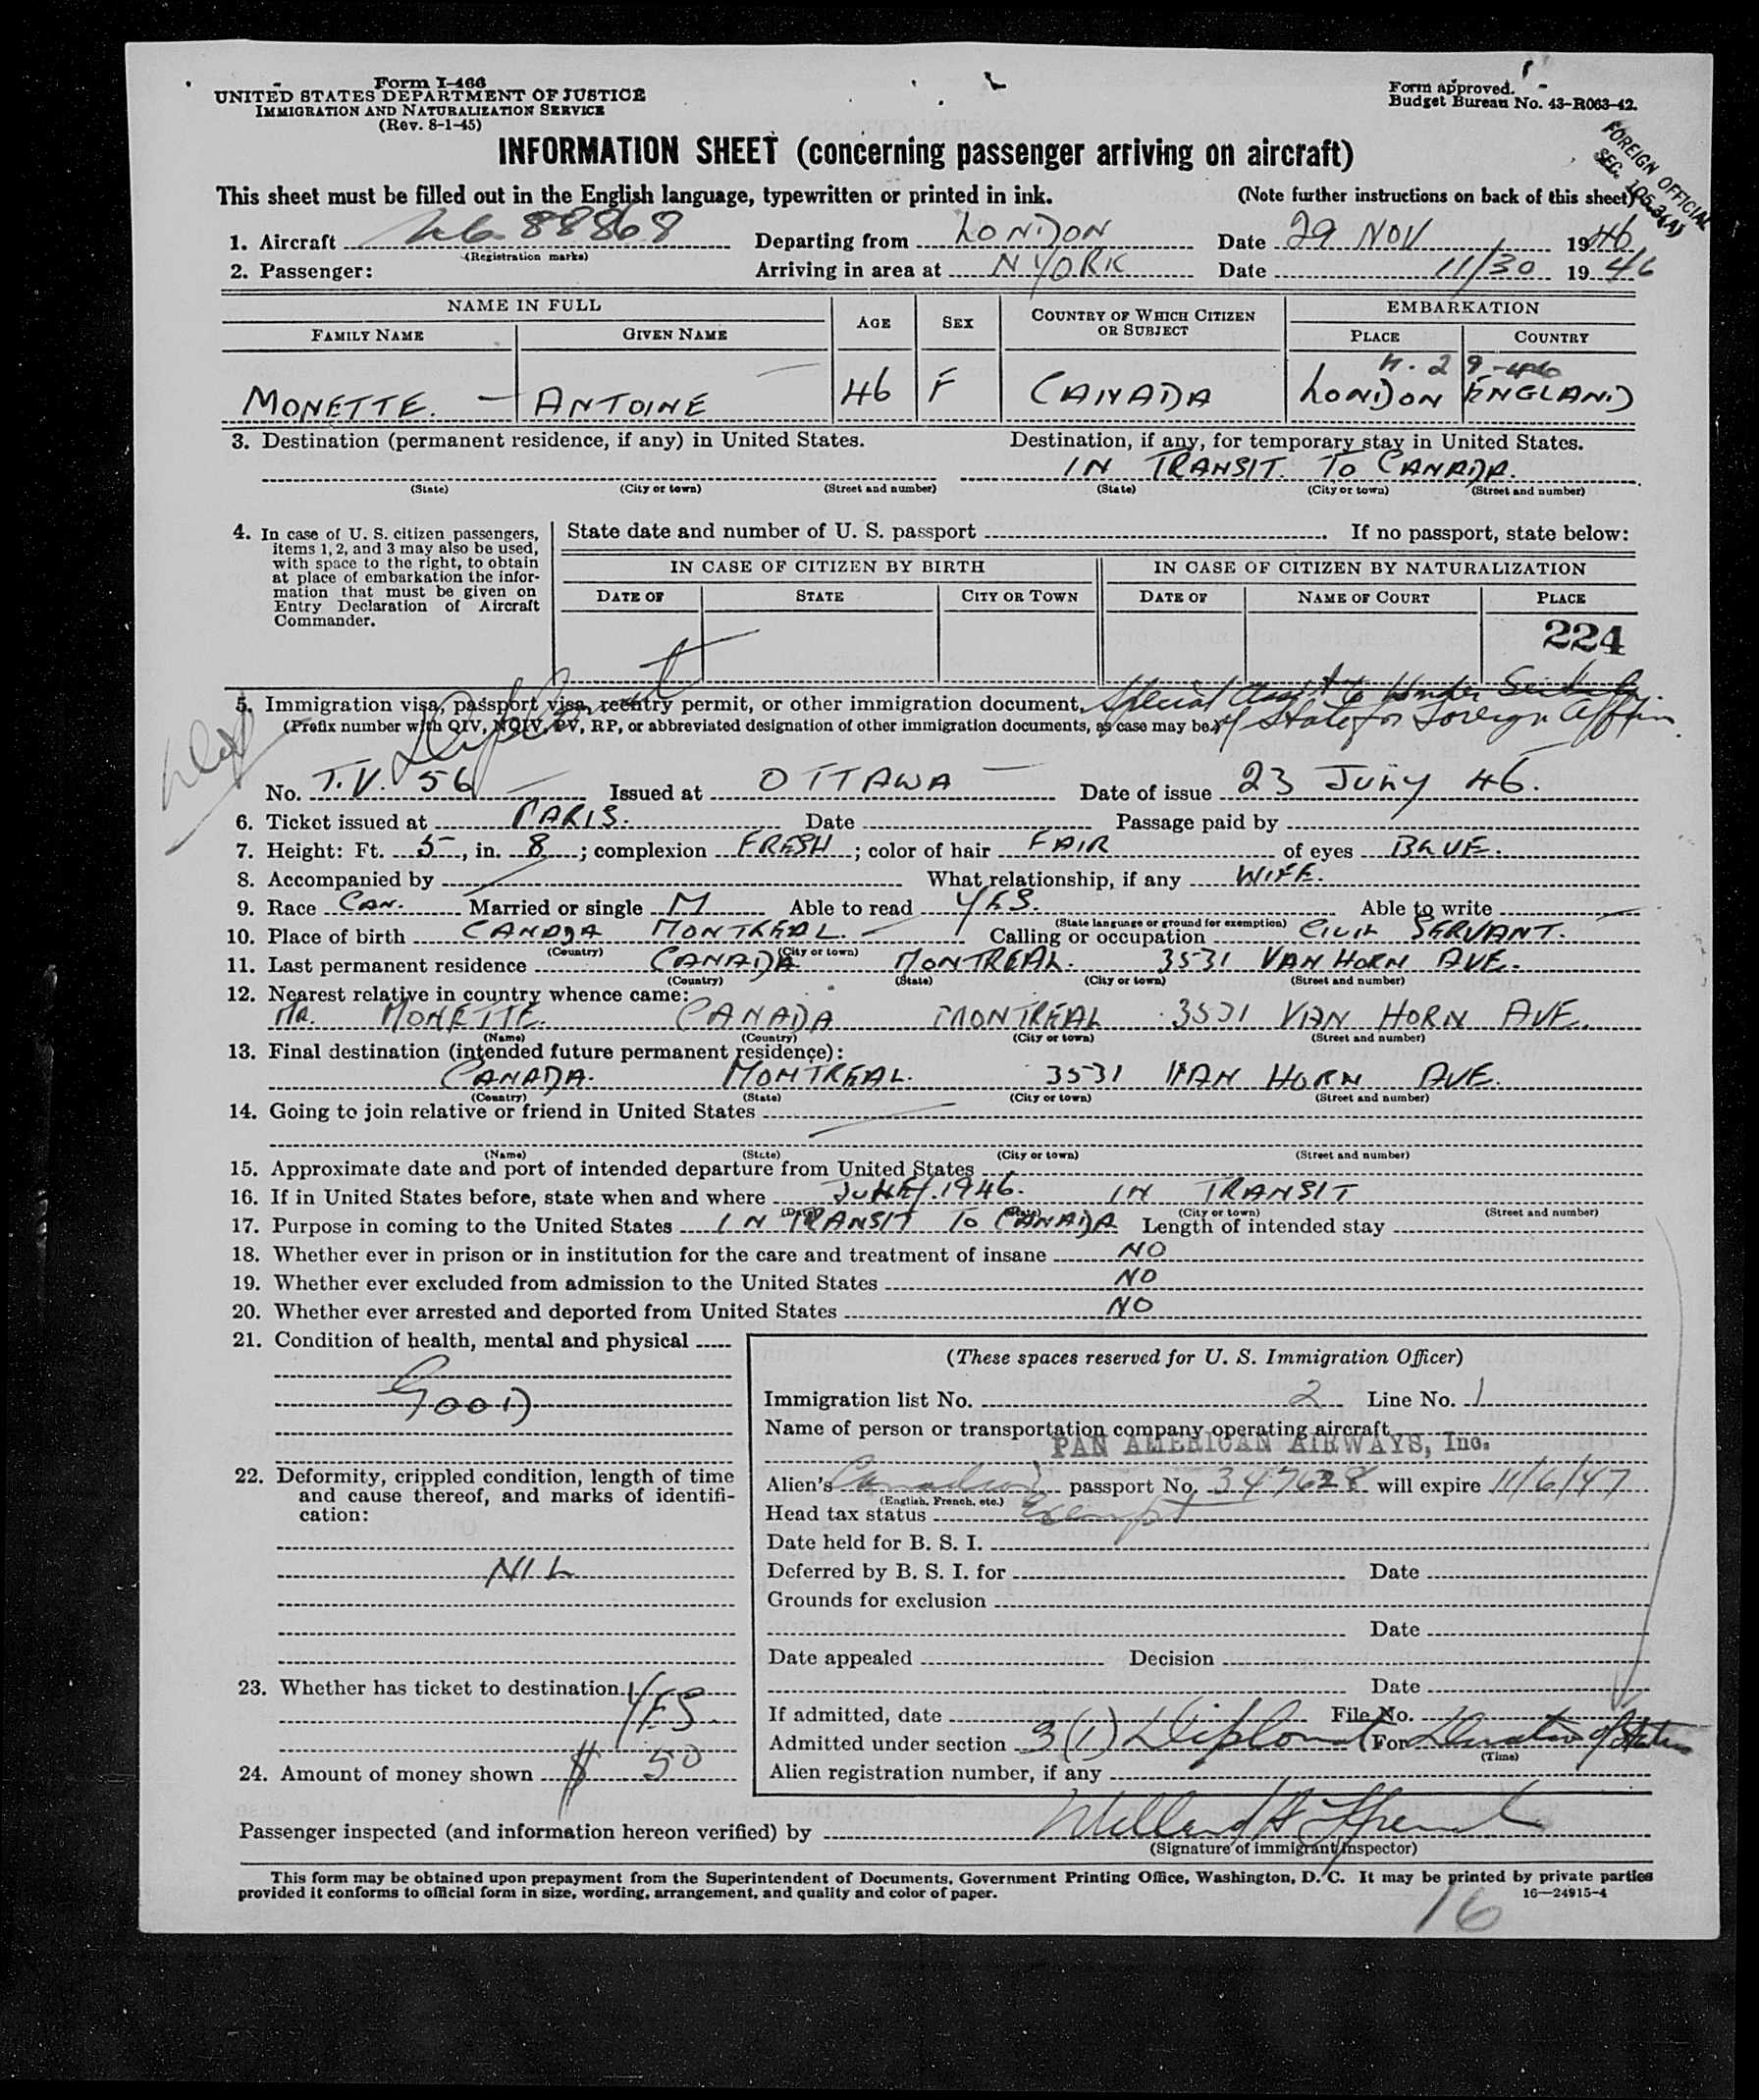 Form I-466
UNITED STATES DEPARTMENT OF JUSTICE
IMMIGRATION AND NATURALIZATION SERVICE
(Rev. 8-1-45)
Form approved.
Budget Bureau No. 43-R063-42.
FOREIGN OFFICIAL
INFORMATION SHEET (concerning passenger arriving on aircraft)
This sheet must be filled out in the English language, typewritten or printed in ink. (Note further instructions on back of this sheet)
1. Aircraft 88868 Departing from LONDON Date 29 NOV 1946
(Registration marks)
2. Passenger: Arriving in area at N YORK Date 11/30 1946
NAME IN FULL AGE SEX COUNTRY OF WHICH CITIZEN OR SUBJECT EMBARKATION
FAMILY NAME GIVEN NAME PLACE COUNTRY
MONETTE. ANTOINE 46 F CANADA LONDON ENGLAND
3. Destination (permanent residence, if any) in United States. Destination, if any, for temporary stay in United States.
IN TRANSIT. TO CANADA.
(State) (City or town) (Street and number) (State) (City or town) (Street and number)
4. In case of U. S. citizen passengers, items 1, 2, and 3 may also be used, with space to the right, to obtain at place of embarkation the information that must be given on Entry Declaration of Aircraft Commander.
State date and number of U. S. passport If no passport, state below:
IN CASE OF CITIZEN BY BIRTH IN CASE OF CITIZEN BY NATURALIZATION
DATE OF STATE CITY OR TOWN DATE OF NAME OF COURT PLACE
224
5. Immigration visa, passport visa, reentry permit, or other immigration document. Special Assist to Under
(Prefix number with QIV, NQIV, PV, RP, or abbreviated designation of other immigration documents, as case may be.) of State for Foreign Affairs
No. T.V. 56 Issued at OTTAWA Date of issue 23 46.
6. Ticket issued at PARIS. Date Passage paid by
7. Height: Ft. 5, in. 8; complexion FRESH; color of hair FAIR of eyes BLUE.
8. Accompanied by What relationship, if any WIFE.
9. Race CAN. Married or single M Able to read YES. Able to write
(State language or ground for exemption)
10. Place of birth CANADA MONTREAL. Calling or occupation CIVIL SERVANT.
(Country) (City or town)
11. Last permanent residence CANADA MONTREAL. 3531 VAN HORN AVE.
(Country) (State) (City or town) (Street and number)
12. Nearest relative in country whence came:
MR. MONETTE. CANADA MONTREAL 3531 VAN HORN AVE.
(Name) (Country) (City or town) (Street and number)
13. Final destination (intended future permanent residence):
CANADA. MONTREAL. 3531 VAN HORN AVE.
(Country) (State) (City or town) (Street and number)
14. Going to join relative or friend in United States
(Name) (State) (City or town) (Street and number)
15. Approximate date and port of intended departure from United States
16. If in United States before, state when and where 1946. IN TRANSIT
(Date) (State) (City or town) (Street and number)
17. Purpose in coming to the United States IN TRANSIT TO CANADA Length of intended stay
18. Whether ever in prison or in institution for the care and treatment of insane NO
19. Whether ever excluded from admission to the United States NO
20. Whether ever arrested and deported from United States NO
21. Condition of health, mental and physical
GOOD
22. Deformity, crippled condition, length of time and cause thereof, and marks of identification:
NIL
23. Whether has ticket to destination YES.
24. Amount of money shown $ 50
(These spaces reserved for U. S. Immigration Officer)
Immigration list No. 2 Line No. 1
Name of person or transportation company operating aircraft
PAN AMERICAN AIRWAYS, Inc.
Alien's Canadian passport No. 347628 will expire 11/6/47
(English, French, etc.)
Head tax status Exempt
Date held for B. S. I.
Deferred by B. S. I. for Date
Grounds for exclusion
Date
Date appealed Decision
Date
If admitted, date File No.
Admitted under section 3(1) Diplomat For Duration of Status
(Time)
Alien registration number, if any
Passenger inspected (and information hereon verified) by
(Signature of immigrant inspector)
This form may be obtained upon prepayment from the Superintendent of Documents, Government Printing Office, Washington, D. C. It may be printed by private parties
provided it conforms to official form in size, wording, arrangement, and quality and color of paper. 16—24915-4
16